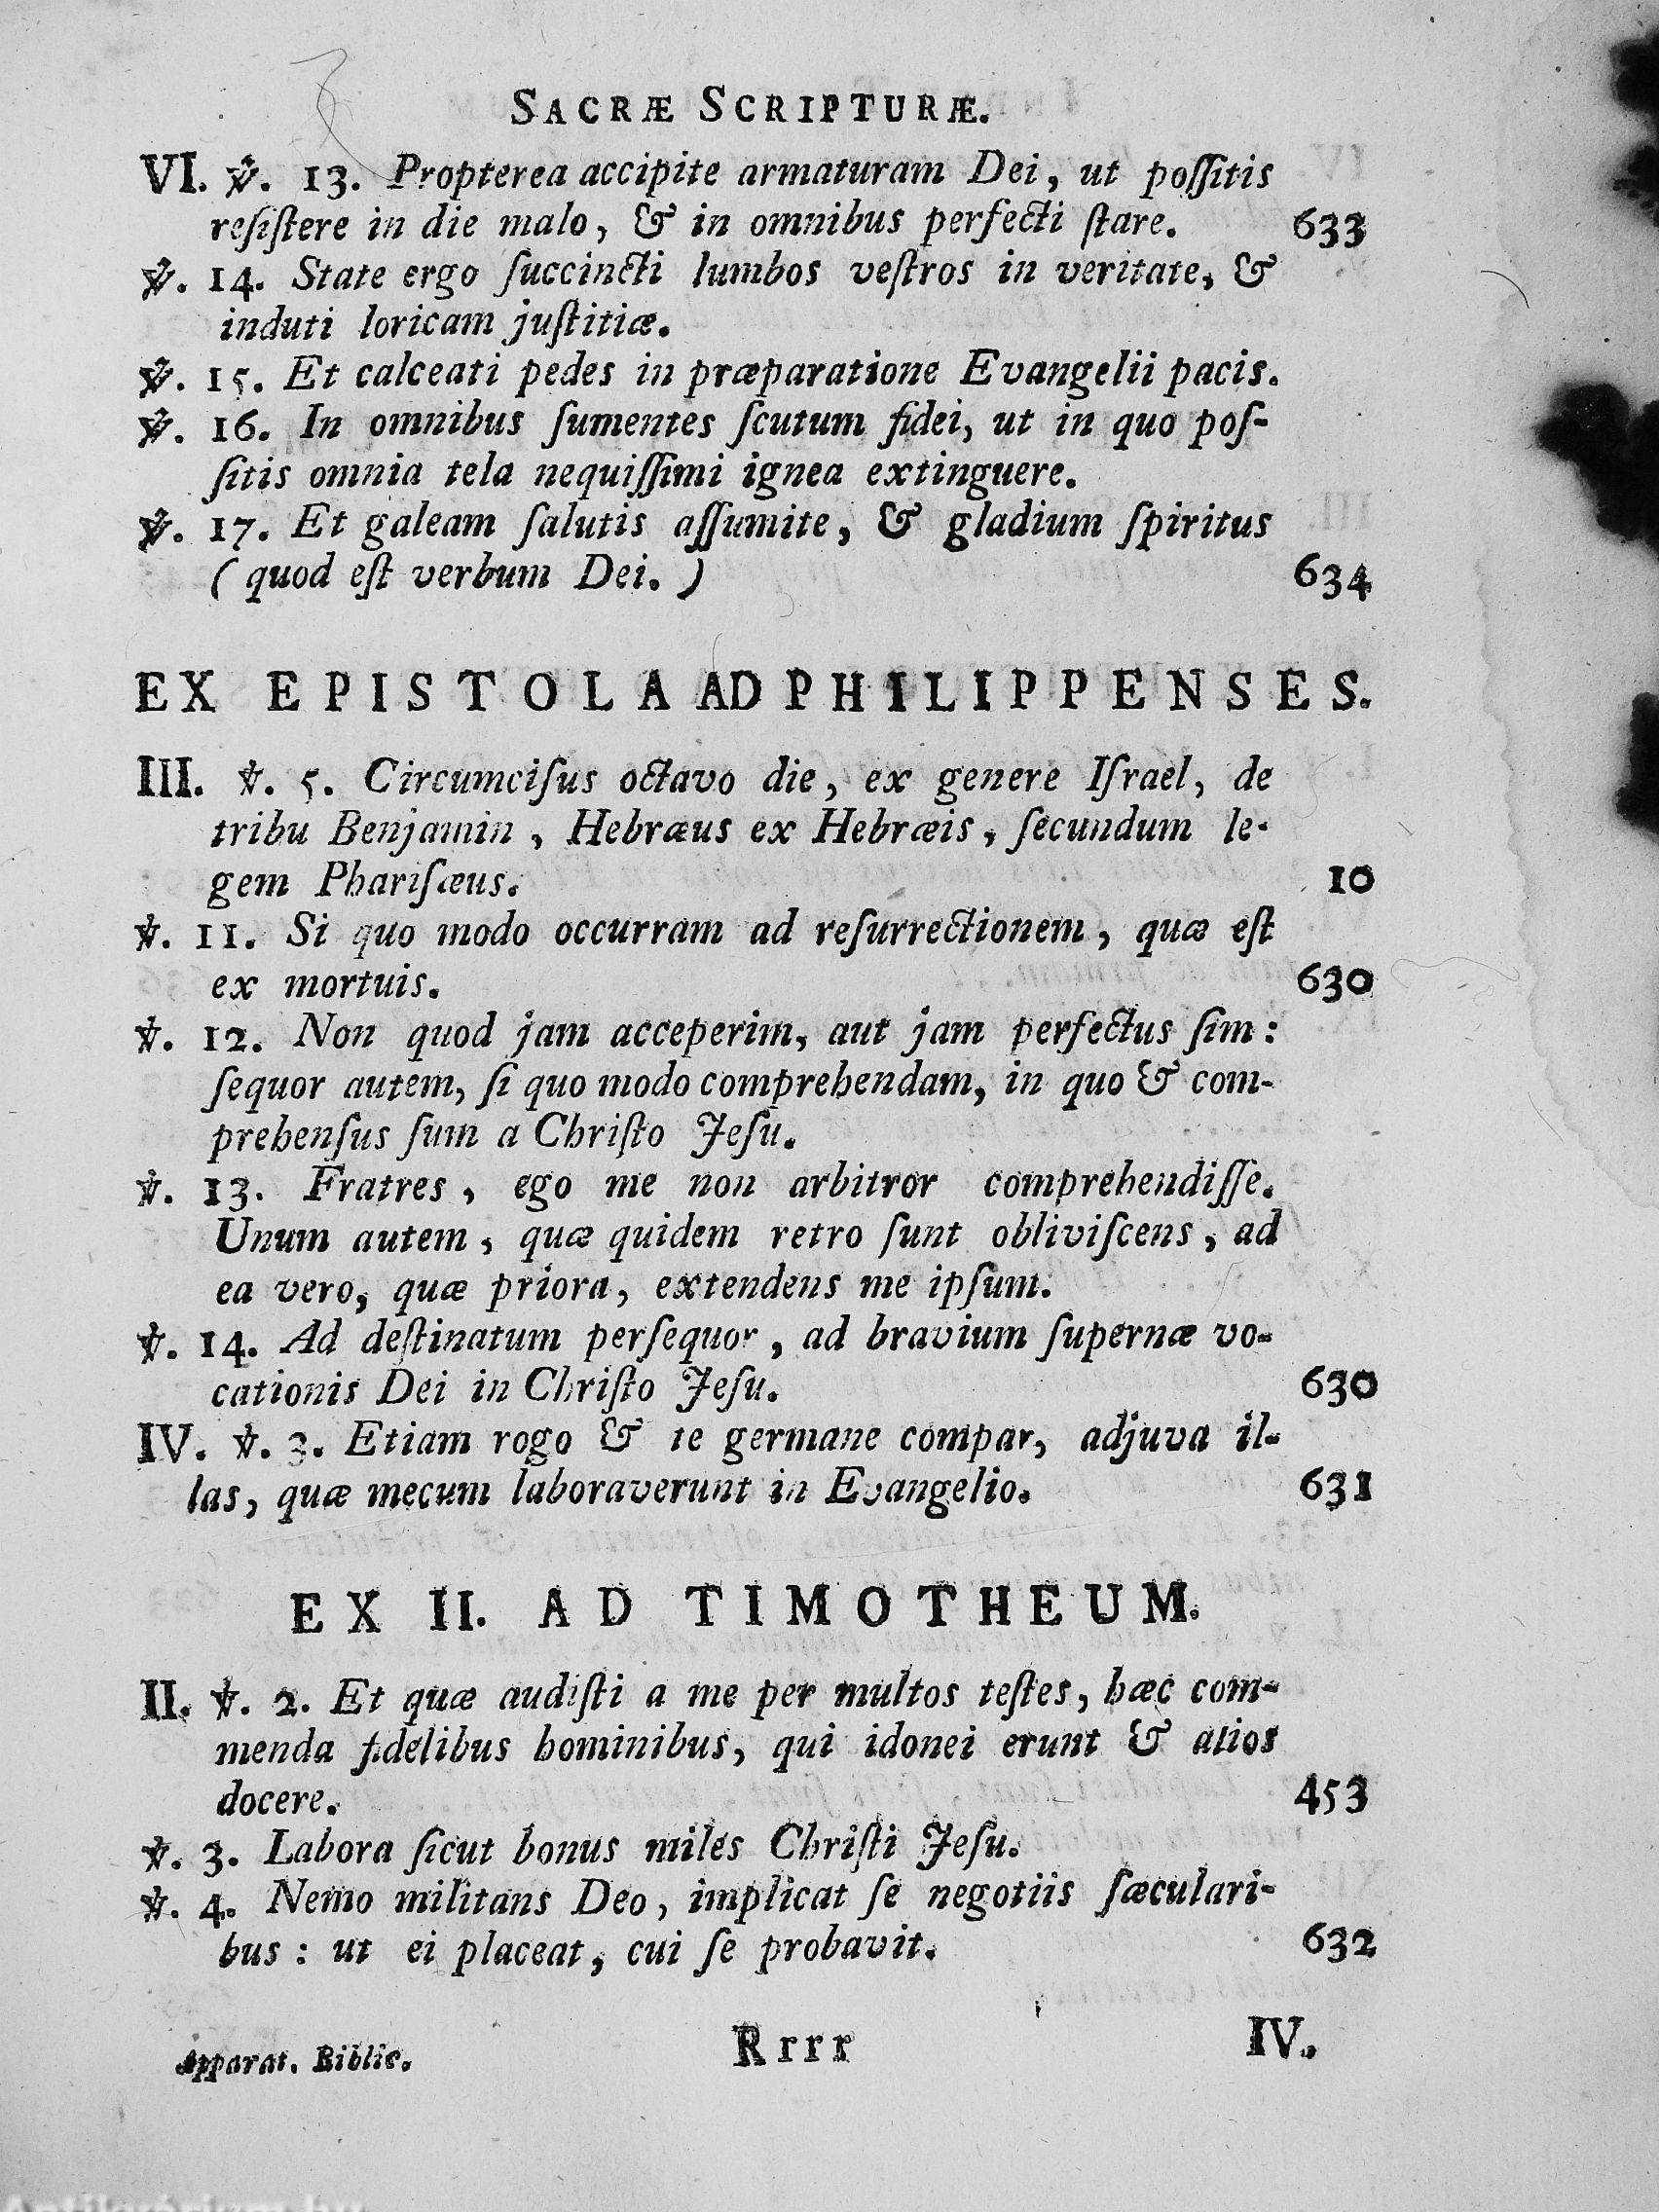 SACRÆ SCRIPTURÆ.
VI. ℣. 13. Propterea accipite armaturam Dei, ut poſſitis
reſiſtere in die malo, & in omnibus perfecti ſtare. 633
℣. 14. State ergo ſuccincti lumbos veſtros in veritate, &
induti loricam juſtitiæ.
℣. 15. Et calceati pedes in præparatione Evangelii pacis.
℣. 16. In omnibus ſumentes ſcutum fidei, ut in quo poſ-
ſitis omnia tela nequiſſimi ignea extinguere.
℣. 17. Et galeam ſalutis aſſumite, & gladium ſpiritus
( quod eſt verbum Dei. ) 634
EX EPISTOLA AD PHILIPPENSES.
III. ℣. 5. Circumciſus octavo die, ex genere Iſrael, de
tribu Benjamin, Hebræus ex Hebræis, ſecundum le-
gem Phariſæus. 10
℣. 11. Si quo modo occurram ad reſurrectionem, quæ eſt
ex mortuis. 630
℣. 12. Non quod jam acceperim, aut jam perfectus ſim:
ſequor autem, ſi quo modo comprehendam, in quo & com-
prehenſus ſum a Chriſto Jeſu.
℣. 13. Fratres, ego me non arbitror comprehendiſſe.
Unum autem, quæ quidem retro ſunt obliviſcens, ad
ea vero, quæ priora, extendens me ipſum.
℣. 14. Ad deſtinatum perſequor, ad bravium ſupernæ vo-
cationis Dei in Chriſto Jeſu. 630
IV. ℣. 3. Etiam rogo & te germane compar, adjuva il-
las, quæ mecum laboraverunt in Evangelio. 631
EX II. AD TIMOTHEUM.
II. ℣. 2. Et quæ audiſti a me per multos teſtes, hæc com-
menda fidelibus hominibus, qui idonei erunt & alios
docere. 453
℣. 3. Labora ſicut bonus miles Chriſti Jeſu.
℣. 4. Nemo militans Deo, implicat ſe negotiis ſæculari-
bus: ut ei placeat, cui ſe probavit. 632
Apparat. Biblic. Rrrr IV.